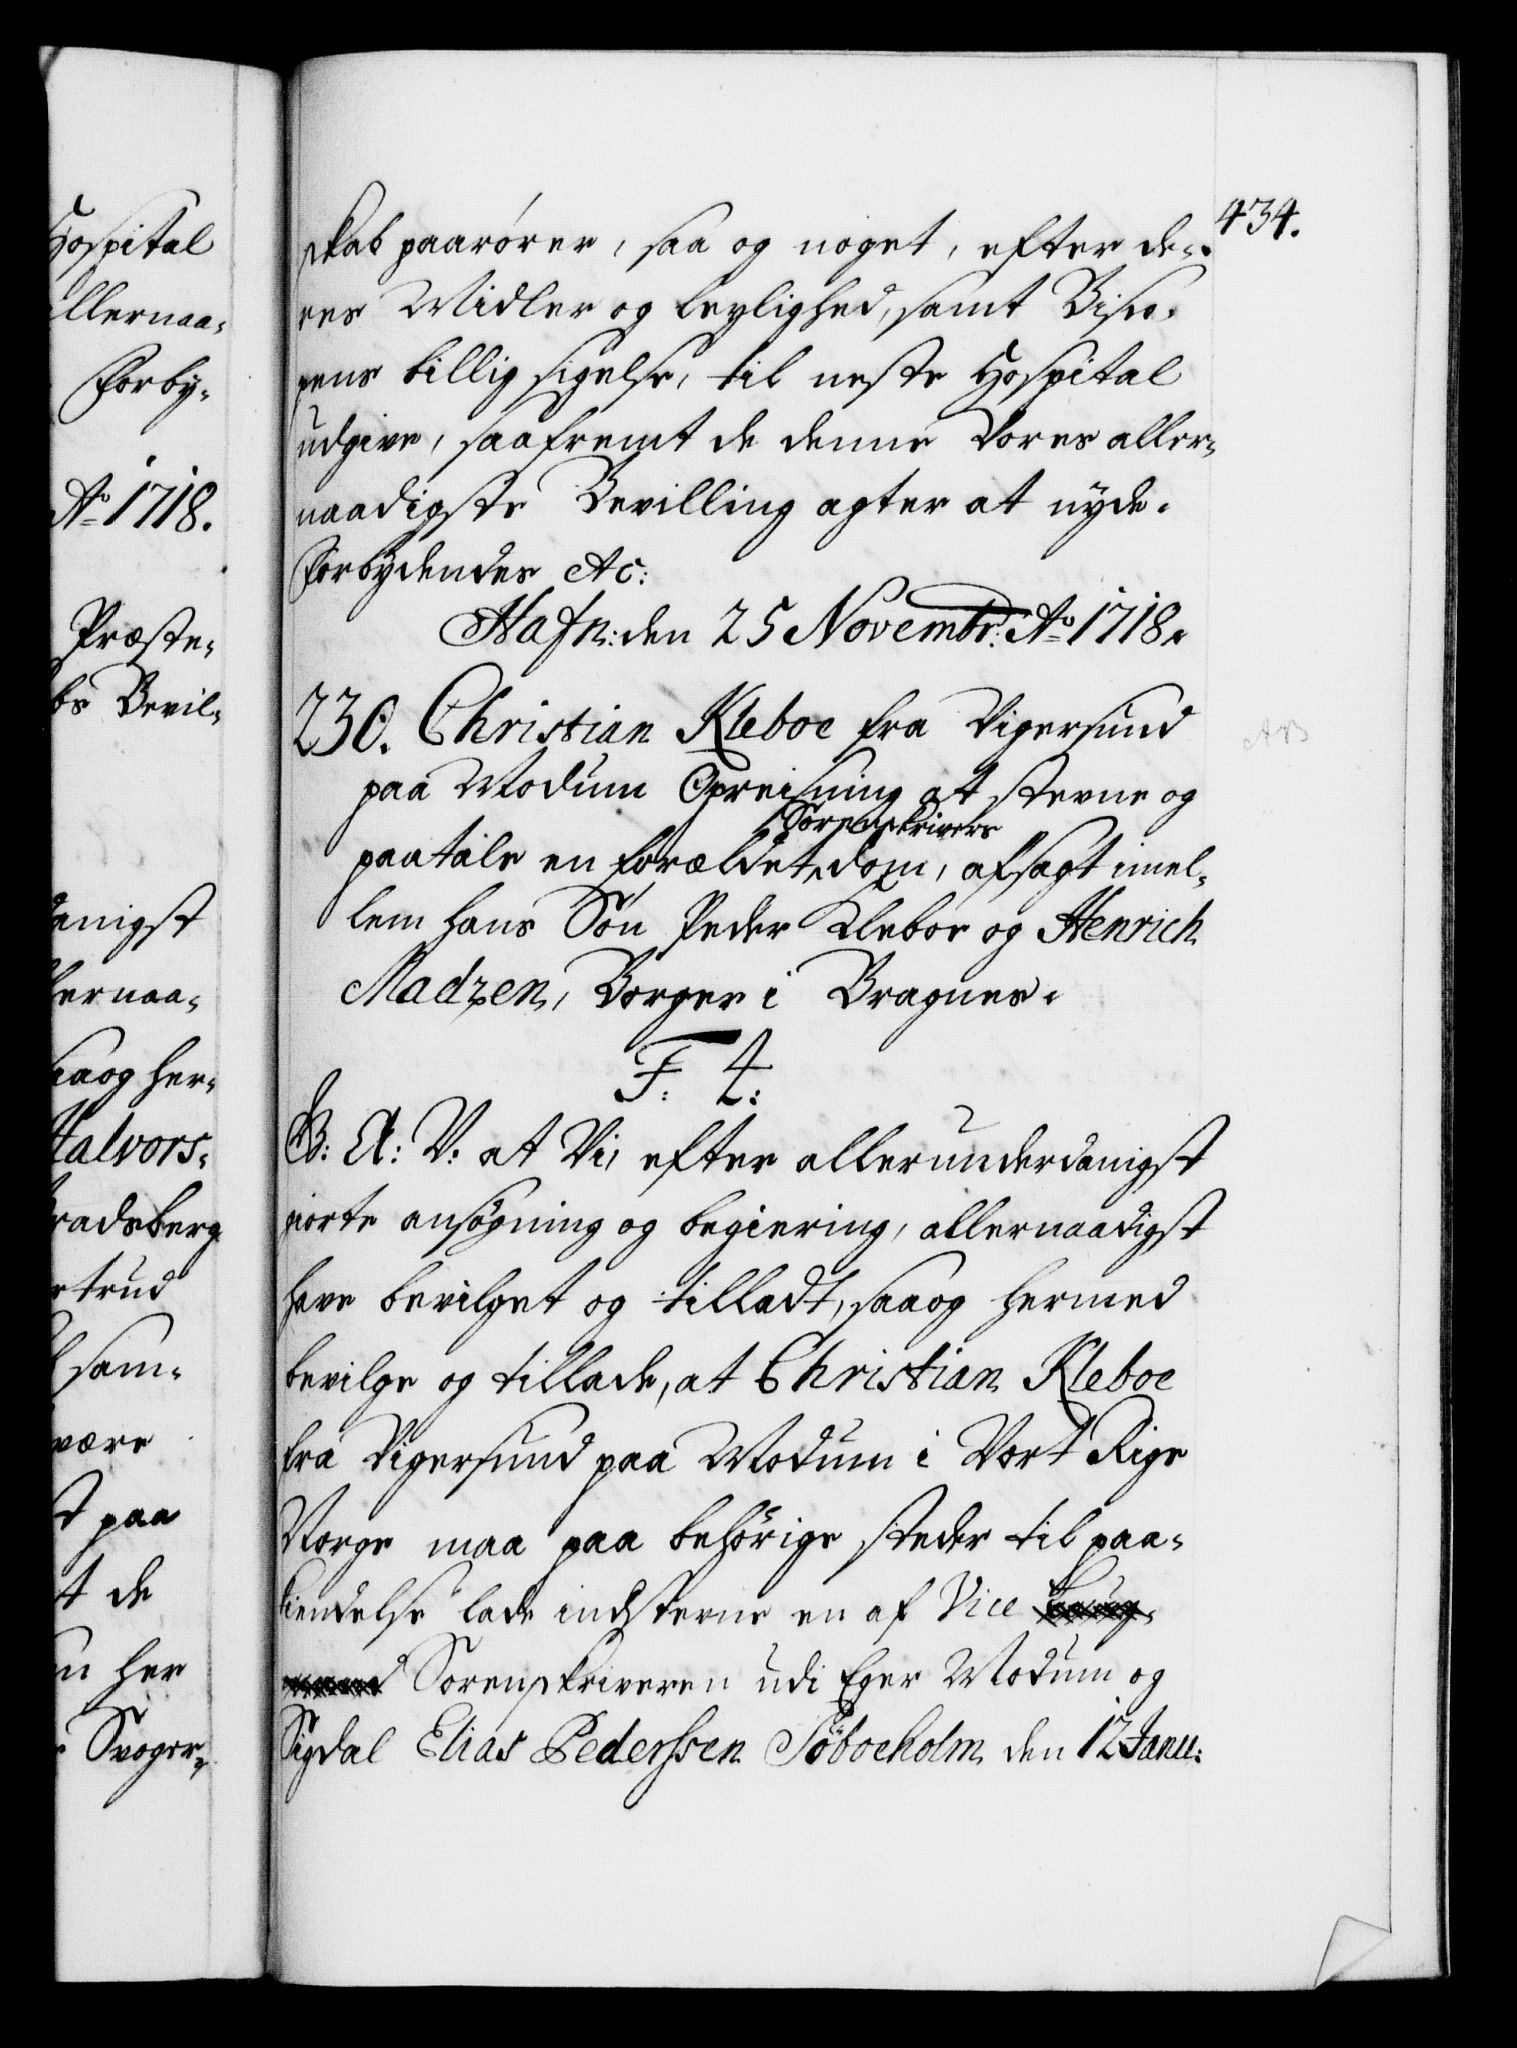 Hospital
llernaa-
Forby-
Ao 1718.
Præste-
bs Bevil-
danigst
lernaa-
saa og her-
Halvors-
radsberg
rtrud
sam-
være
paa
t de
her
Svoger-
434.
skab paarører, saa og noget, efter de-
res Midler og leylighed, samt Bisco-
pens billig sigelse, til neste Hospital
udgive, saafremt de denne Vores aller-
naadigste Bevilling agter at nyde.
Forbydendes &c:
Hafn: den 25 Novembr: Ao 1718.
230. Christian Kleboe fra Vigersund
paa Modum Opreisning at stevne og
Sorenskrivers
paatale en forældet dom, afsagt imel-
lem hans Søn Peder Kleboe og Henrich
Madzen, Borger i Bragnes.
F: 4:
G: A: V: at Vi, efter allerunderdanigst
giorte ansøgning og begiering, allernaadigst
have bevilget og tilladt, saa og hermed
bevilge og tillade, at Christian Kleboe
fra Vigersund paa Modum i Vort Rige
Norge maa paa behörige steder til paa-
kiendelse lade indstevne en af Vice Laug-
mand Sorenskriveren udi Eger Modum og
Sigdal Elias Pederssen Söboeholm den 12 Janu: